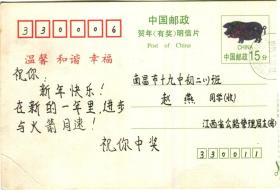 330006
中国邮政
贺年(有奖)明信片
Post of China
CHINA
中国邮政 15分
温馨 和谐 幸福
祝你:
新年快乐!
在新的一年里,进步
与火箭同速!
祝你中奖
南昌市十九中初二(1)班
赵燕 同学(收)
江西省公路管理局
330011